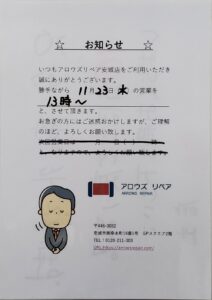 ☆ お知らせ ☆
いつもアロウズリペア安城店をご利用いただき
誠にありがとうございます。
勝手ながら 11月23日 水 の営業を
13時〜
と、させて頂きます。
お急ぎの方にはご迷惑おかけしますが、ご理解
のほど、よろしくお願い致します。
アロウズ リペア
ARROWS REPAIR
〒446-0002
TEL:0120-211-303